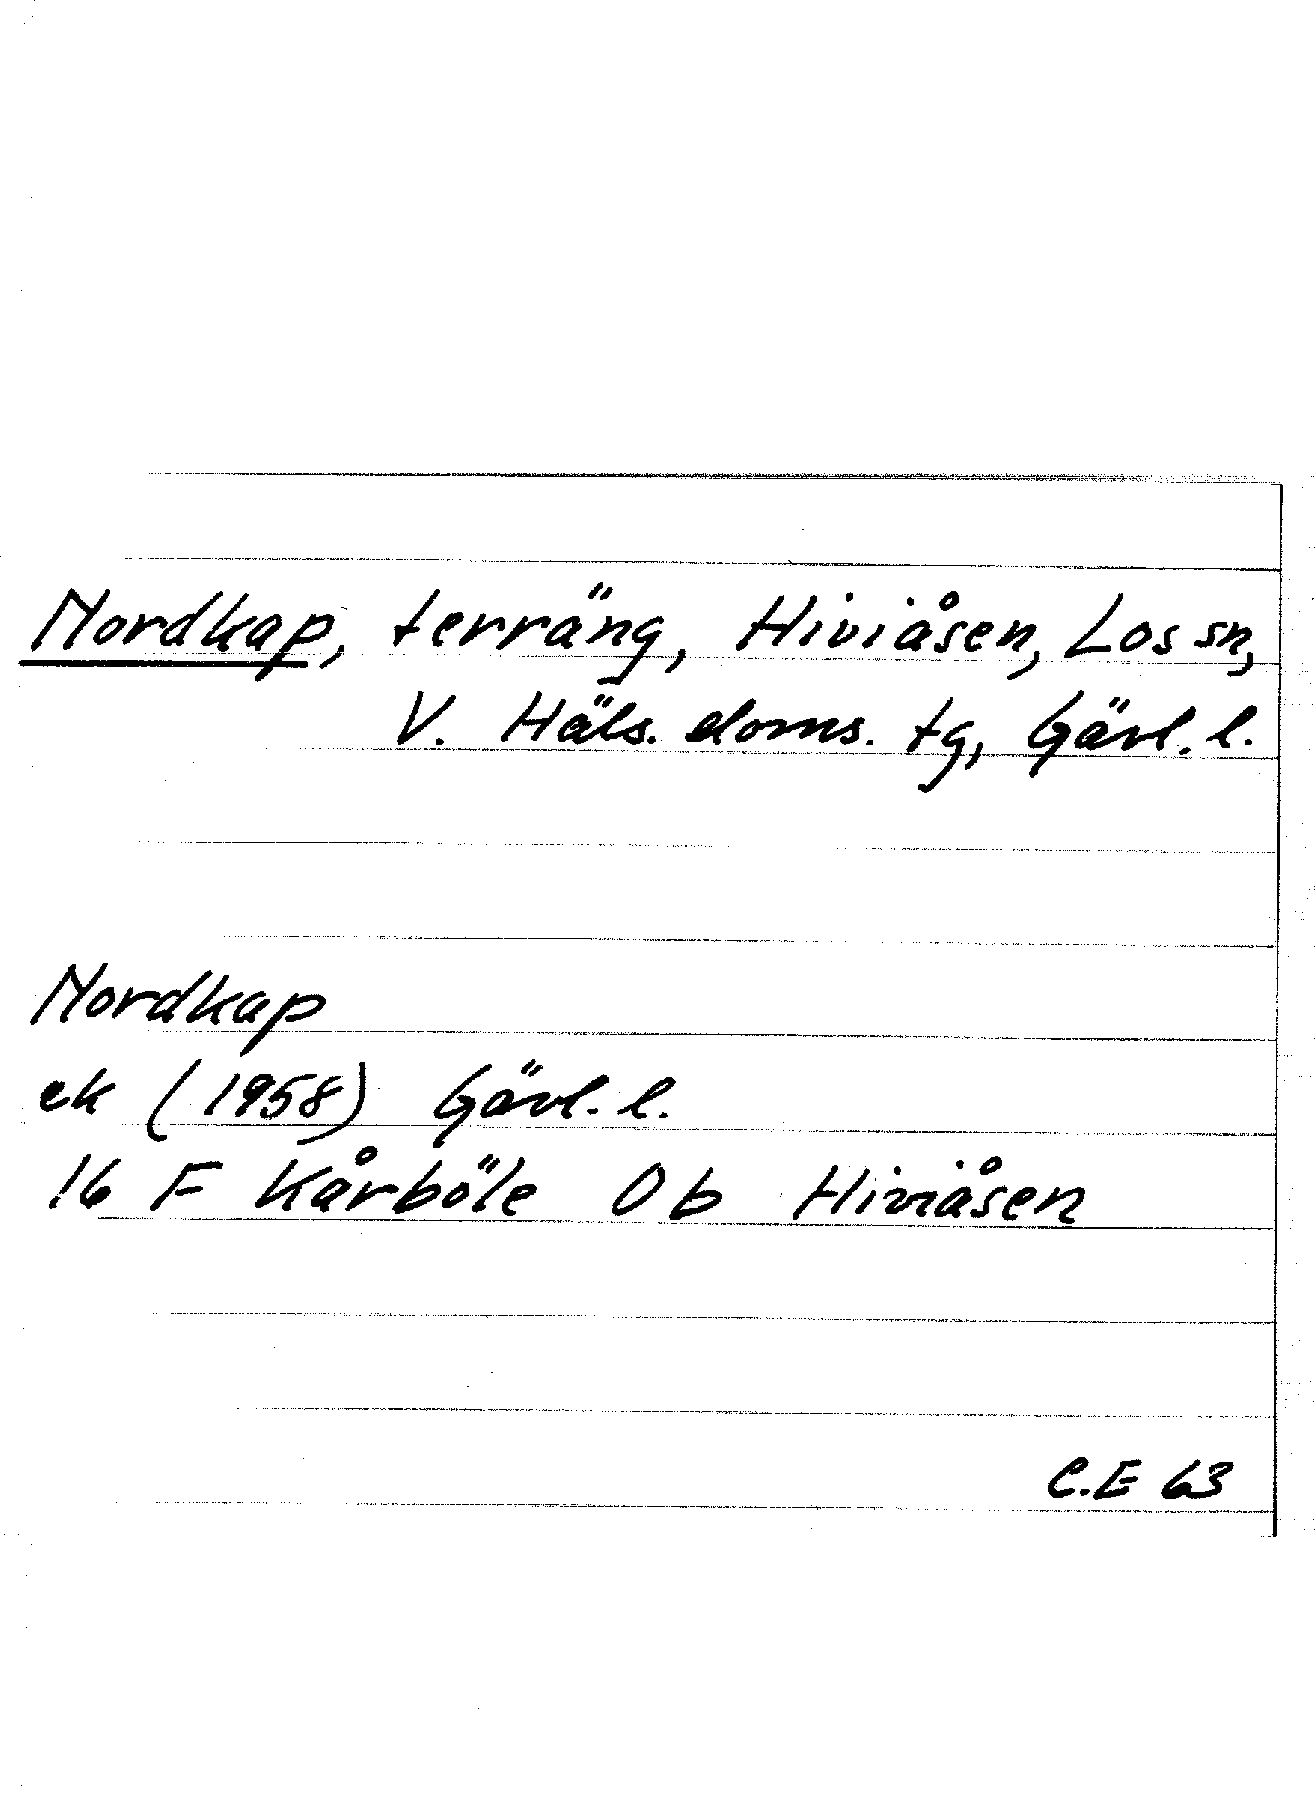 Nordkap, terräng, Hiviåsen, Los sn,
V. Häls. doms. tg, Gävl. l.
Nordkap
ek (1958) Gävl. l.
16 F Kårböle 0 b Hiviåsen
C.E 63